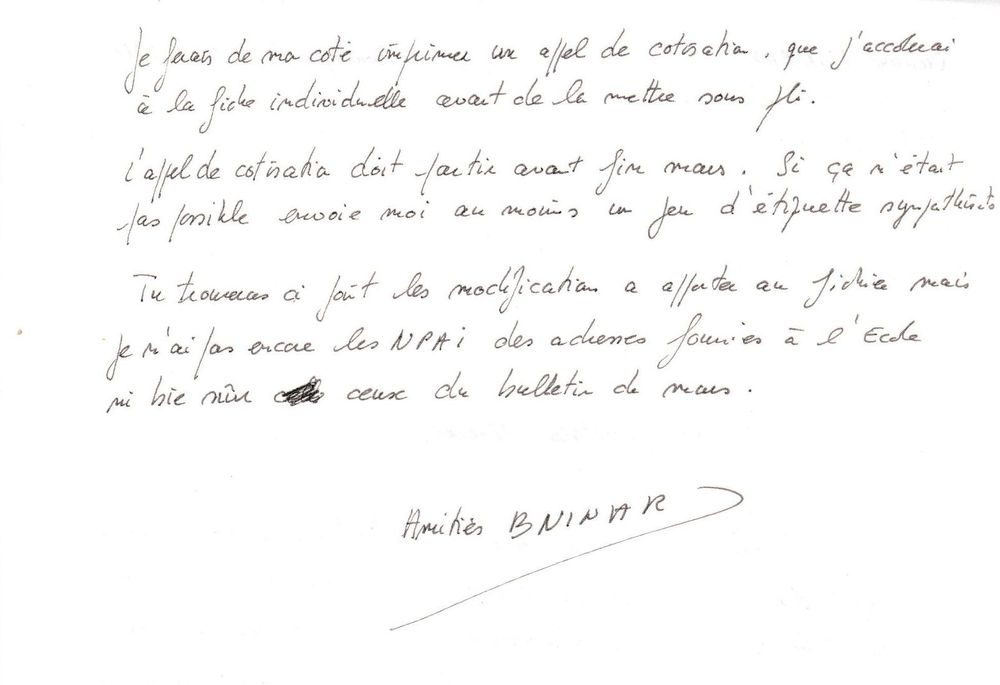 Je ferais de ma coté imprimer un appel de cotisation, que j'accolerai
à la fiche individuelle avant de la mettre sous pli.
L'appel de cotisation doit partir avant fin mars. Si ça n'était
pas possible envoie moi au moins un jeu d'étiquette sympathisants
Tu trouveras ci joint les modification a apporter au fichier mais
je n'ai pas encore les NPAi des adresses fournies à l'Ecole
ni bie sûr ceux du bulletin de mars.
Amitiés BNINAR